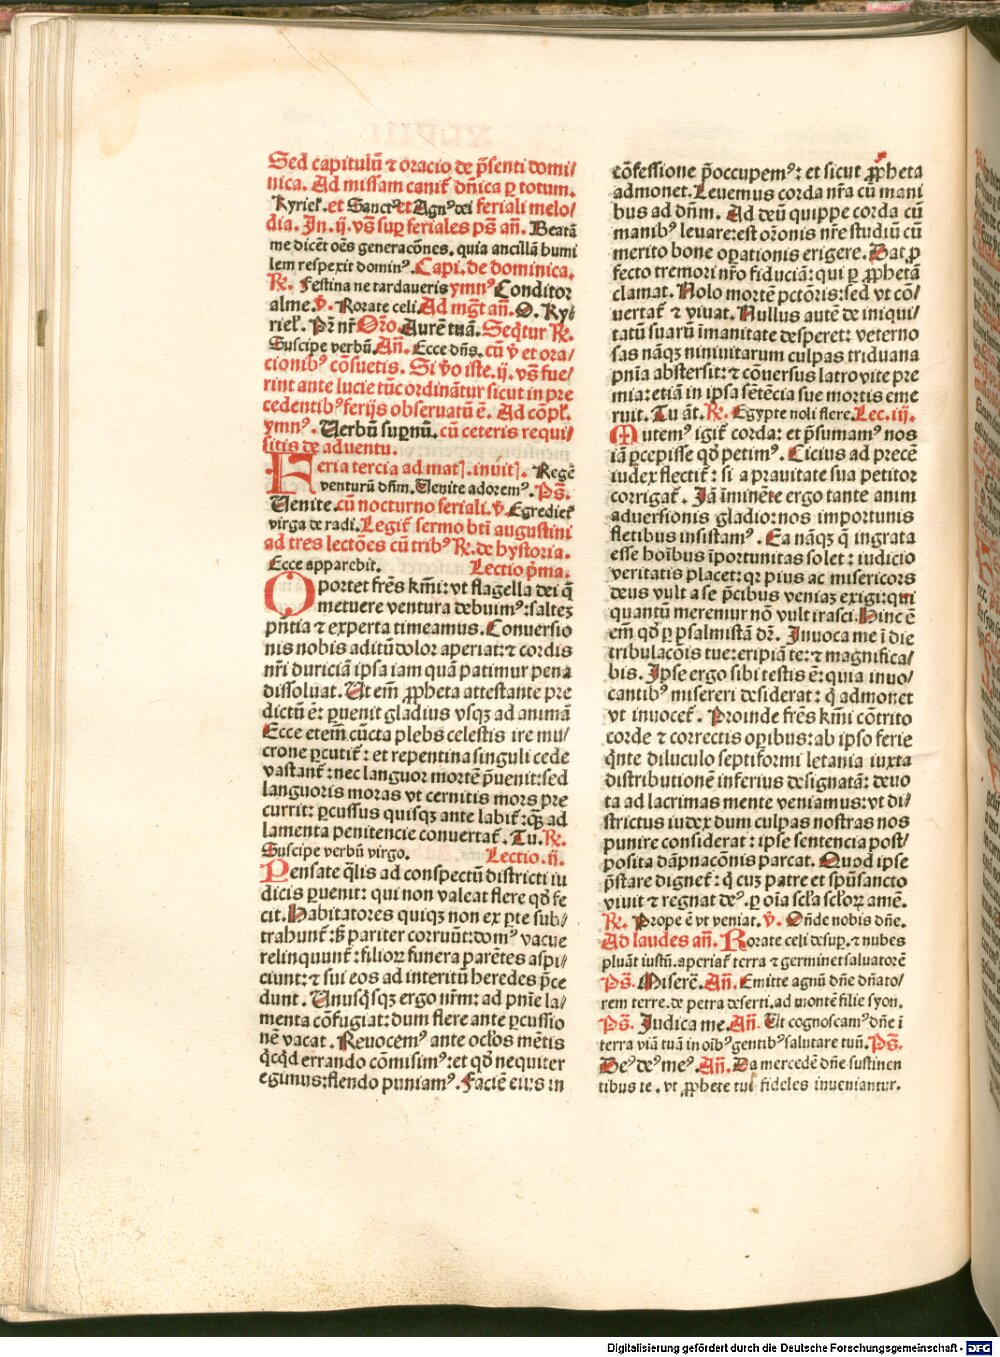 Sed capitulū ⁊ oracio de p̄senti domi/
nica. Ad missam canit᷑ dn̄ica ꝑ totum.
Kyriel᷑. et Sanctꝰ et Agnꝰ dei feriali melo/
dia. In .ij. vs̄ suꝑ feriales ps̄ an̄. Beatā
me dicēt oēs generacōnes, quia ancillā humi
lem respexit dominꝰ. Capi. de dominica.
R. Festina ne tardaveris ymnꝰ Conditor
alme. v̄. Rorate celi. Ad mg̅t an̄. O. Ky/
riel᷑. Pr̄ nr̄ Oro̅. Aurē tuā. Seqt̄ur R.
Suscipe verbū. An̄. Ecce dn̄s. cū v̄ et ora/
cionibꝰ cōsuetis. Si v̄o iste .ij. vs̄ fue/
rint ante lucie tūc ordināt̄ur sicut in pre
cedentibꝰ ferijs observatū ē. Ad cōpl᷑.
ymnꝰ. Verbū suꝑnū. cū ceteris requi/
sitis de adventu.
Feria tercia ad mat̄. invit̄. Regē
venturū dn̄m. Venite adoremꝰ. Ps̄.
Venite. cū nocturno feriali. v̄. Egrediet᷑
virga de radi. Legit᷑ sermo bt̄i augustini
ad tres lectōes cū tribꝰ R. de hystoria.
Ecce apparebit. Lectio p̄ma.
Oportet fr̄es km̄i: vt flagella dei q̄
metuere ventura debuimꝰ: saltez
pn̄tia ⁊ experta timeamus. Conversio
nis nobis aditū dolor aperiat: ⁊ cordis
nr̄i duriciā ipsa iam quā patimur pena
dissoluat. Ut em̄ ꝓpheta attestante pre
dictū ē: ꝑuenit gladius vsqꝫ ad animā
Ecce etem̄ cūcta plebs celestis ire mu/
crone ꝑcutit᷑: et repentina singuli cede
vastant᷑: nec languor mortē p̄uenit: sed
languoris moras vt cernitis mors pre
currit: ꝑcussus quisqꝫ ante labit᷑: qꝫ ad
lamenta penitencie convertat᷑. Tu. R.
Suscipe verbū virgo. Lectio. ij.
Pensate q̄lis ad conspectū districti iu
dicis ꝑuenit: qui non valeat flere qd̄ fe
cit. Habitatores quiqꝫ non ex ꝑte sub/
trahunt᷑: sꝫ pariter corruūt: domꝰ vacue
relinquunt᷑: filioꝝ funera parētes aspi/
ciunt: ⁊ sui eos ad interitū heredes p̄ce
dunt. Unusq̄sqꝫ ergo nr̄m: ad pn̄ie la/
menta cōfugiat: dum flere ante ꝑcussio
nē vacat. Revocemꝰ ante oclōs mētis
q̄cqd̄ errando cōmisimꝰ: et qd̄ nequiter
egimus: flendo puniamꝰ. Faciē eius in
cōfessione p̄occupemꝰ: et sicut ꝓpheta
admonet. Levemus corda nr̄a cū mani
bus ad dn̄m. Ad deū quippe corda cū
manibꝰ levare: est or̄onis nr̄e studiū cū
merito bone oꝑationis erigere. Dat ꝓ
fecto tremori nr̄o fiduciā: qui ꝑ ꝓphetā
clamat. Nolo mortē pctōris: sed vt cō/
vertat᷑ ⁊ vivat. Nullus autē de iniqui/
tatū suarū imanitate desperet: veterno
sas nāqꝫ ninivitarum culpas triduana
pn̄ia abstersit: ⁊ cōversus latro vite pre
mia: etiā in ipsa sētēcia sue mortis eme
ruit. Tu āt. R. Egypte noli flere. Lec. iij.
Mutemꝰ igit᷑ corda: et p̄sumamꝰ nos
iā ꝑcepisse qd̄ petimꝰ. Cicius ad precē
iudex flectit᷑: si a pravitate sua petitor
corrigat᷑. Iā īminēte ergo tante anim
adversionis gladio: nos importunis
fletibus insistamꝰ. Ea nāqꝫ q̄ ingrata
esse hoībus īportunitas solet: iudicio
veritatis placet: qꝛ pius ac misericors
deus vult a se p̄cibus veniaꝫ exigi: qui
quantū meremur nō vult irasci. Hinc ē
em̄ qd̄ ꝑ psalmistā dr̄. Invoca me ī die
tribulacōis tue: eripiā te: ⁊ magnifica/
bis. Ipse ergo sibi testis ē: quia invo/
cantibꝰ misereri desiderat: q̄ admonet
vt invocet᷑. Proinde fr̄es km̄i cōtrito
corde ⁊ correctis oꝑibus: ab ipso ferie
q̄nte diluculo septiformi letania iuxta
distributionē inferius designatā: devo
ta ad lacrimas mente veniamus: vt di/
strictus iudex dum culpas nostras nos
punire considerat: ipse sentencia post/
posita dāpnacōnis parcat. Quod ipse
p̄stare dignet᷑: q̄ cuꝫ patre et spū sancto
vivit ⁊ regnat deꝰ. ꝑ oīa scl̄a scl̄oꝝ amē.
R. Prope ē vt veniat. v̄. Ōnde nobis dn̄e.
Ad laudes an̄. Rorate celi desuꝑ. ⁊ nubes
pluāt iustū. aperiat᷑ terra ⁊ germinet salvatorē
Ps̄. Miserē. An̄. Emitte agnū dn̄e dn̄ato/
rem terre. de petra deserti. ad montē filie syon.
Ps̄. Iudica me. An̄. Ut cognoscamꝰ dn̄e ī
terra viā tuā in oībꝰ gentibꝰ salutare tuū. Ps̄.
Deꝰ deꝰ meꝰ. An̄. Da mercedē dn̄e sustinen
tibus te. vt ꝓphete tui fideles inveniantur.
Digitalisierung gefördert durch die Deutsche Forschungsgemeinschaft - DFG